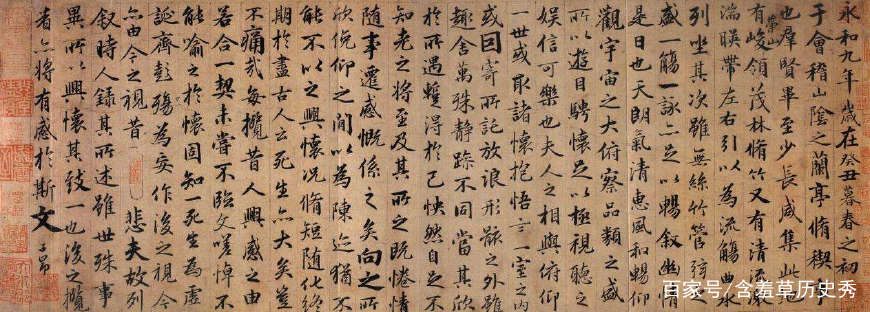 永和九年歲在癸丑暮春之初
于會稽山陰之蘭亭脩稧
也羣賢畢至少長咸集此地
有崇山峻領茂林脩竹又有清流激
湍暎帶左右引以為流觴曲水
列坐其次雖無絲竹管弦
盛一觴一詠亦足以暢叙幽情
是日也天朗氣清惠風和暢仰
觀宇宙之大俯察品類之盛
所以遊目騁懷足以極視聽之
娛信可樂也夫人之相與俯仰
一世或取諸懷抱悟言一室之内
或因寄所託放浪形骸之外雖
趣舍萬殊静躁不同當其欣
於所遇蹔得於己怏然自足不
知老之將至及其所之既惓情
隨事遷感慨係之矣向之所
欣俛仰之間以為陳迹猶不
能不以之興懷况脩短隨化終
期於盡古人云死生亦大矣豈
不痛哉每攬昔人興感之由
若合一契未嘗不臨文嗟悼不
能喻之於懷固知一死生為虚
誕齊彭殤為妄作後之視今
亦由今之視昔 悲夫故列
叙時人錄其所述雖世殊事
異所以興懷其致一也後之攬
者亦將有感於斯文 子昂
百家号/含羞草历史秀